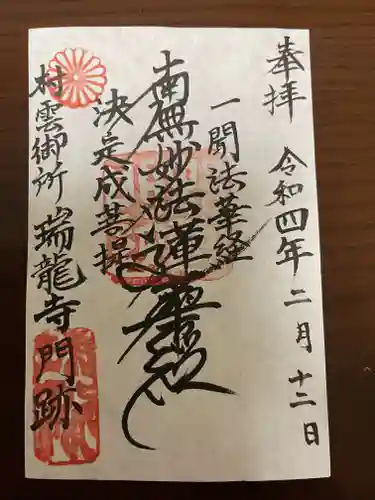 奉拝
令和四年二月十二日
一聞法華経
南無妙法蓮華経
決定成菩提
村雲御所瑞龍寺門跡